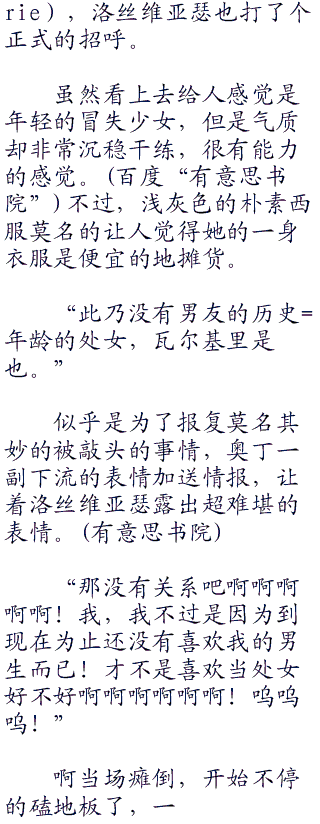 rie），洛丝维亚瑟也打了个
正式的招呼。
虽然看上去给人感觉是
年轻的冒失少女，但是气质
却非常沉稳干练，很有能力
的感觉。(百度“有意思书
院”)不过，浅灰色的朴素西
服莫名的让人觉得她的一身
衣服是便宜的地摊货。
“此乃没有男友的历史=
年龄的处女，瓦尔基里是
也。”
似乎是为了报复莫名其
妙的被敲头的事情，奥丁一
副下流的表情加送情报，让
着洛丝维亚瑟露出超难堪的
表情。(有意思书院)
“那没有关系吧啊啊啊
啊啊！我，我不过是因为到
现在为止还没有喜欢我的男
生而已！才不是喜欢当处女
好不好啊啊啊啊啊啊！呜呜
呜！”
啊当场瘫倒，开始不停
的磕地板了，一